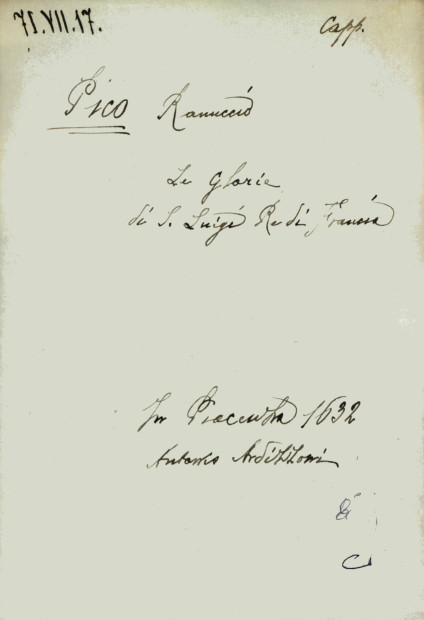 71.VII.17.
Capp.
Pico Ranuccio
Le Glorie
di S. Luigi Re di Francia
In Piacenza 1632
Antonio Ardizzoni